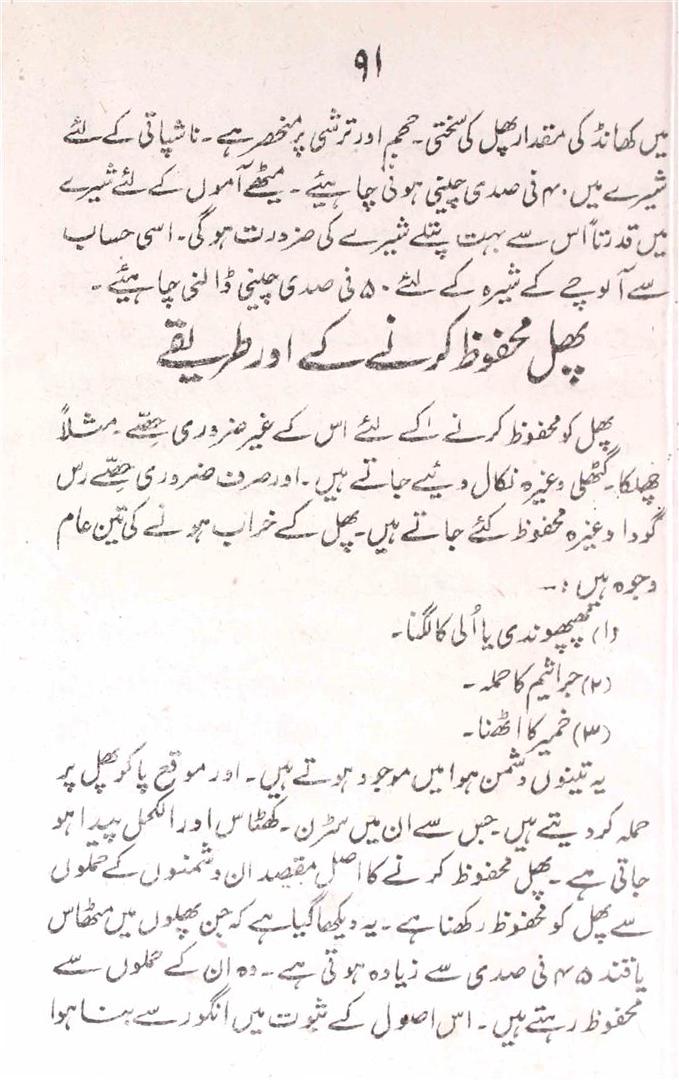 ۹۱
میں کھانڈ کی مقدار پھل کی سختی۔ حجم اور ترشی پر منحصر ہے۔ ناشپاتی کے لئے
شیرے میں ۴۰ فی صدی چینی ہونی چاہیئے۔ میٹھے آموں کے لئے شیرے
میں قدرتاً اس سے بہت پتلے شیرے کی ضرورت ہوگی۔ اسی حساب
سے آلوچے کے شیرہ کے لئے ۵۰ فی صدی چینی ڈالنی چاہیئے۔
پھل محفوظ کرنے کے اور طریقے
پھل کو محفوظ کرنے کے لئے اس کے غیر ضروری حصّے۔ مثلاً
چھلکا۔ گٹھلی وغیرہ نکال دیئے جاتے ہیں۔ اور صرف ضروری حصّے رس
گودا وغیرہ محفوظ کئے جاتے ہیں۔ پھل کے خراب ہونے کی تین عام
وجوہ ہیں :۔
(۱) پھپھوندی یا اُلی کا لگنا۔
(۲) جراثیم کا حملہ۔
(۳) خمیر کا اٹھنا۔
یہ تینوں دشمن ہوا میں موجود ہوتے ہیں۔ اور موقع پا کر پھل پر
حملہ کر دیتے ہیں۔ جس سے ان میں سڑن۔ کھٹاس اور الکحل پیدا ہو
جاتی ہے۔ پھل محفوظ کرنے کا اصل مقصد ان دشمنوں کے حملوں
سے پھل کو محفوظ رکھنا ہے۔ یہ دیکھا گیا ہے کہ جن پھلوں میں مٹھاس
یا قند ۴۵ فی صدی سے زیادہ ہوتی ہے۔ وہ ان کے حملوں سے
محفوظ رہتے ہیں۔ اس اصول کے ثبوت میں انگور سے بنا ہوا